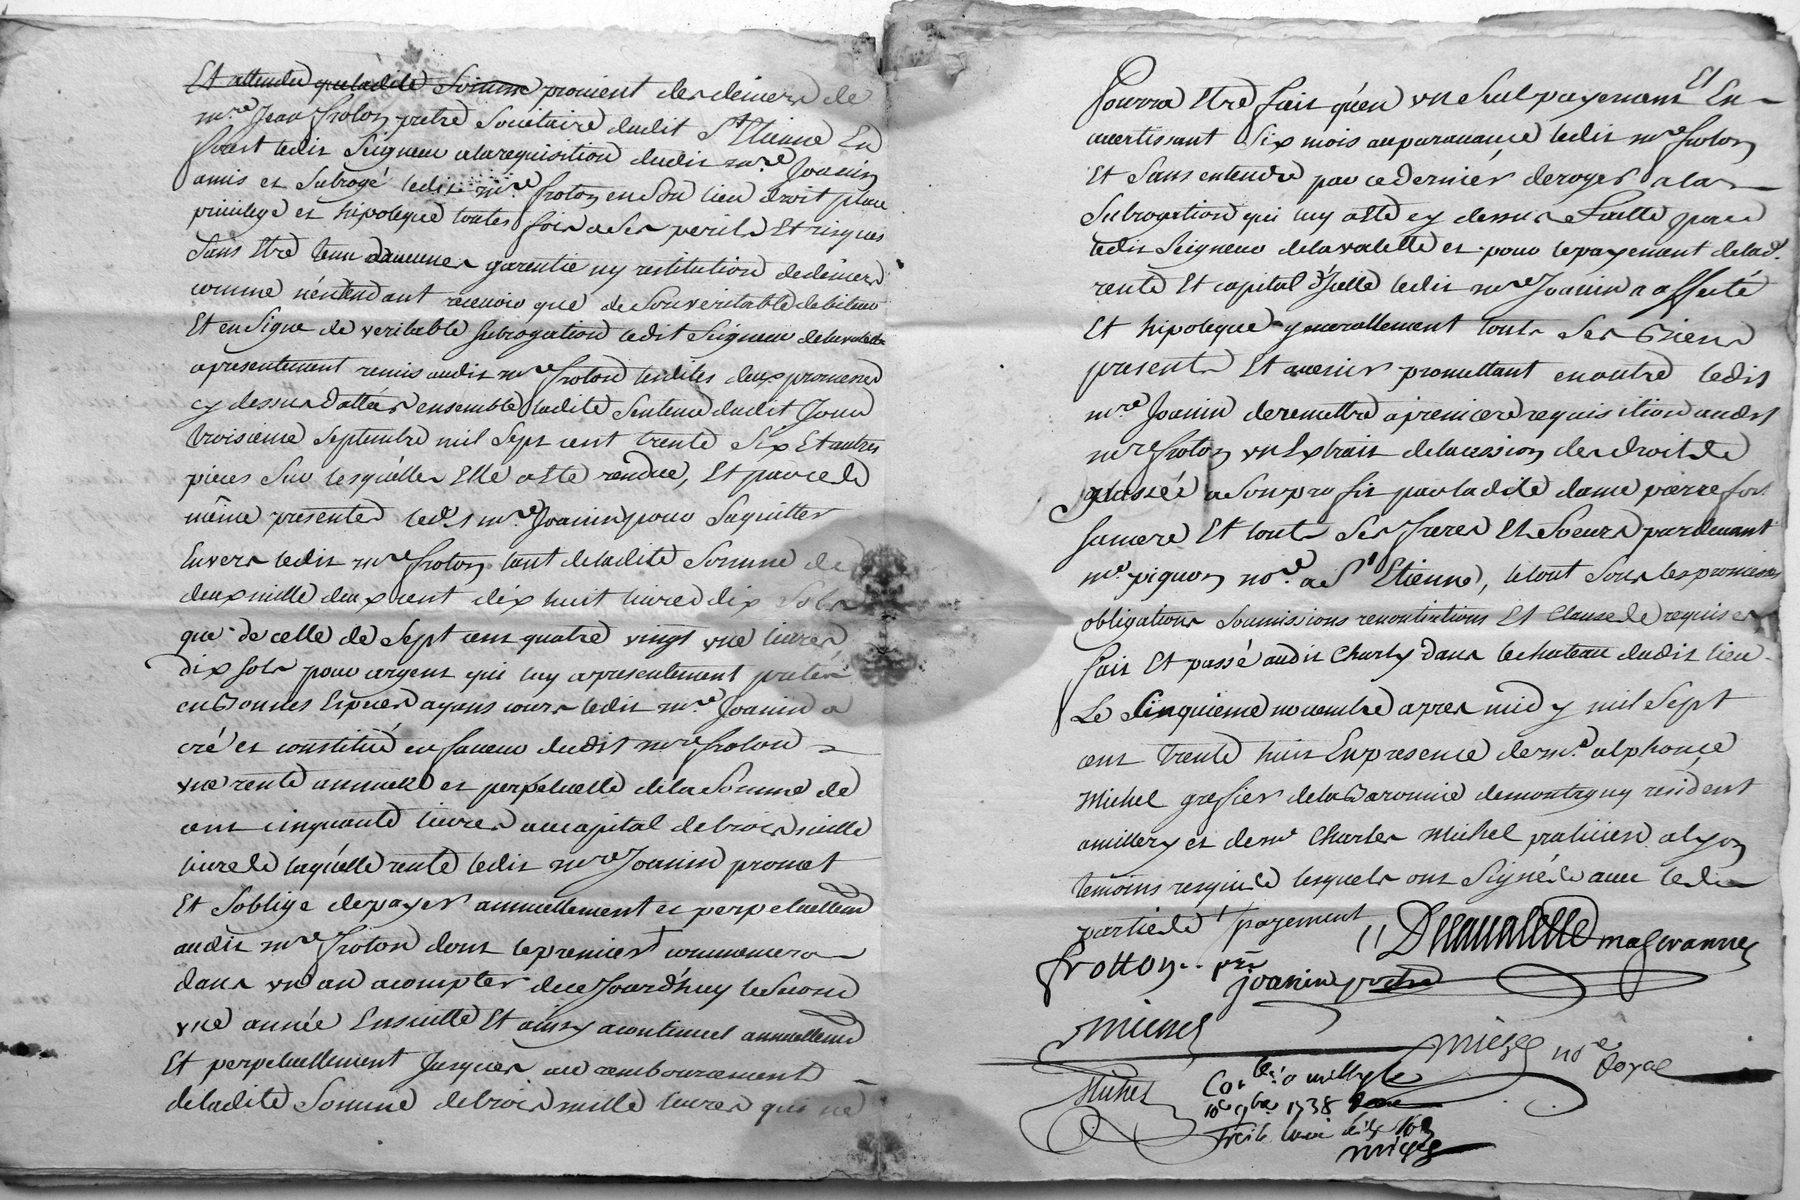 Et attendu que ladite Somme provient des deniers de
mre Jean froton pretre Societaire dudit St Etienne En
forest ledit Seigneur a la requisition dudit mre Joanin
a mis et Subrogé ledit mre froton en Son lieu droit place
privilege et hipoteque toutes fois a Ses perils Et risques
Sans Etre tenu daucunes garentie ny restitution de deniers
comme n'entendant recevoir que de Son veritable debiteur
Et en Signe de veritable Subrogation ledit Seigneur delavalette
a presentement remis audit mre froton lesdites deux promesses
cy dessus dattées ensemble ladite Sentence dudit Jour
troisieme Septembre mil Sept cent trente Six Et autres
pieces Sur lesquelles Elle a Eté rendue, Et par ces
même presentes led. mre Joanin pour Saquitter
Envers ledit mre froton tant de ladite Somme de
deux mille deux cent dix huit livres dix Sols
que de celle de Sept cent quatre vingt une livres
dix Sols pour argent qui luy a presentement prété
en Bonnes Espèces ayant cours ledit mre Joanin a
créé et constitué en faveur dudit mre froton
une rente annuelle et perpetuelle de la Somme de
cent cinquante livres au capital de trois mille
livres de laquelle rente ledit mre Joanin promet
Et Soblige de payer annuellement et perpetuellemt
audit mre froton dont le premier commencera
dans un an a compter de ce Jourd'huy le Second
une année Ensuitte Et ainsy a continuer annuellemt
Et perpetuellement Jusques au remboursement
de ladite Somme de trois mille livres qui ne
pourra Etre fait qu'en un Seul payement Et En
avertissant Six mois auparavance ledit mre froton
Et Sans entendre par ce dernier deroger a la
Subrogation qui luy a Eté cy dessus faitte par
ledit Seigneur delavalette et pour le payement de lad.
rente Et capital d'Icelle ledit mre Joanin a affecté
Et hipoteque generallement touts Ses Biens
presents Et avenir promettant en outre ledit
mre Joanin de remettre a premiere requisition audit
mre froton un Extrait de la cession des droits
passée a Son profit par ladite dame pierrefort
Sa mere Et touts Ses freres Et Soeurs pardevant
me pignon nore a St Etienne, le tout Sous les promesses
obligations Soumissions renontiations Et Clauses requises
fait Et passé audit Charly dans le chateau dudit lieu
Le Cinquieme novembre apres midy mil Sept
cent trente huit En presence de mr alphonce
Michel grefier de la Baronnie de montagny resident
a millery et de mr Charles Michel praticien a lyon
temoins requis lesquels ont Signé avec lesdite
parties / payement // Delavalette masevannes
frotton ptre
Joanin pretre
Michel
Miege nore Royal
Michel
Conlé a millery le
10e 9bre 1738
Miege